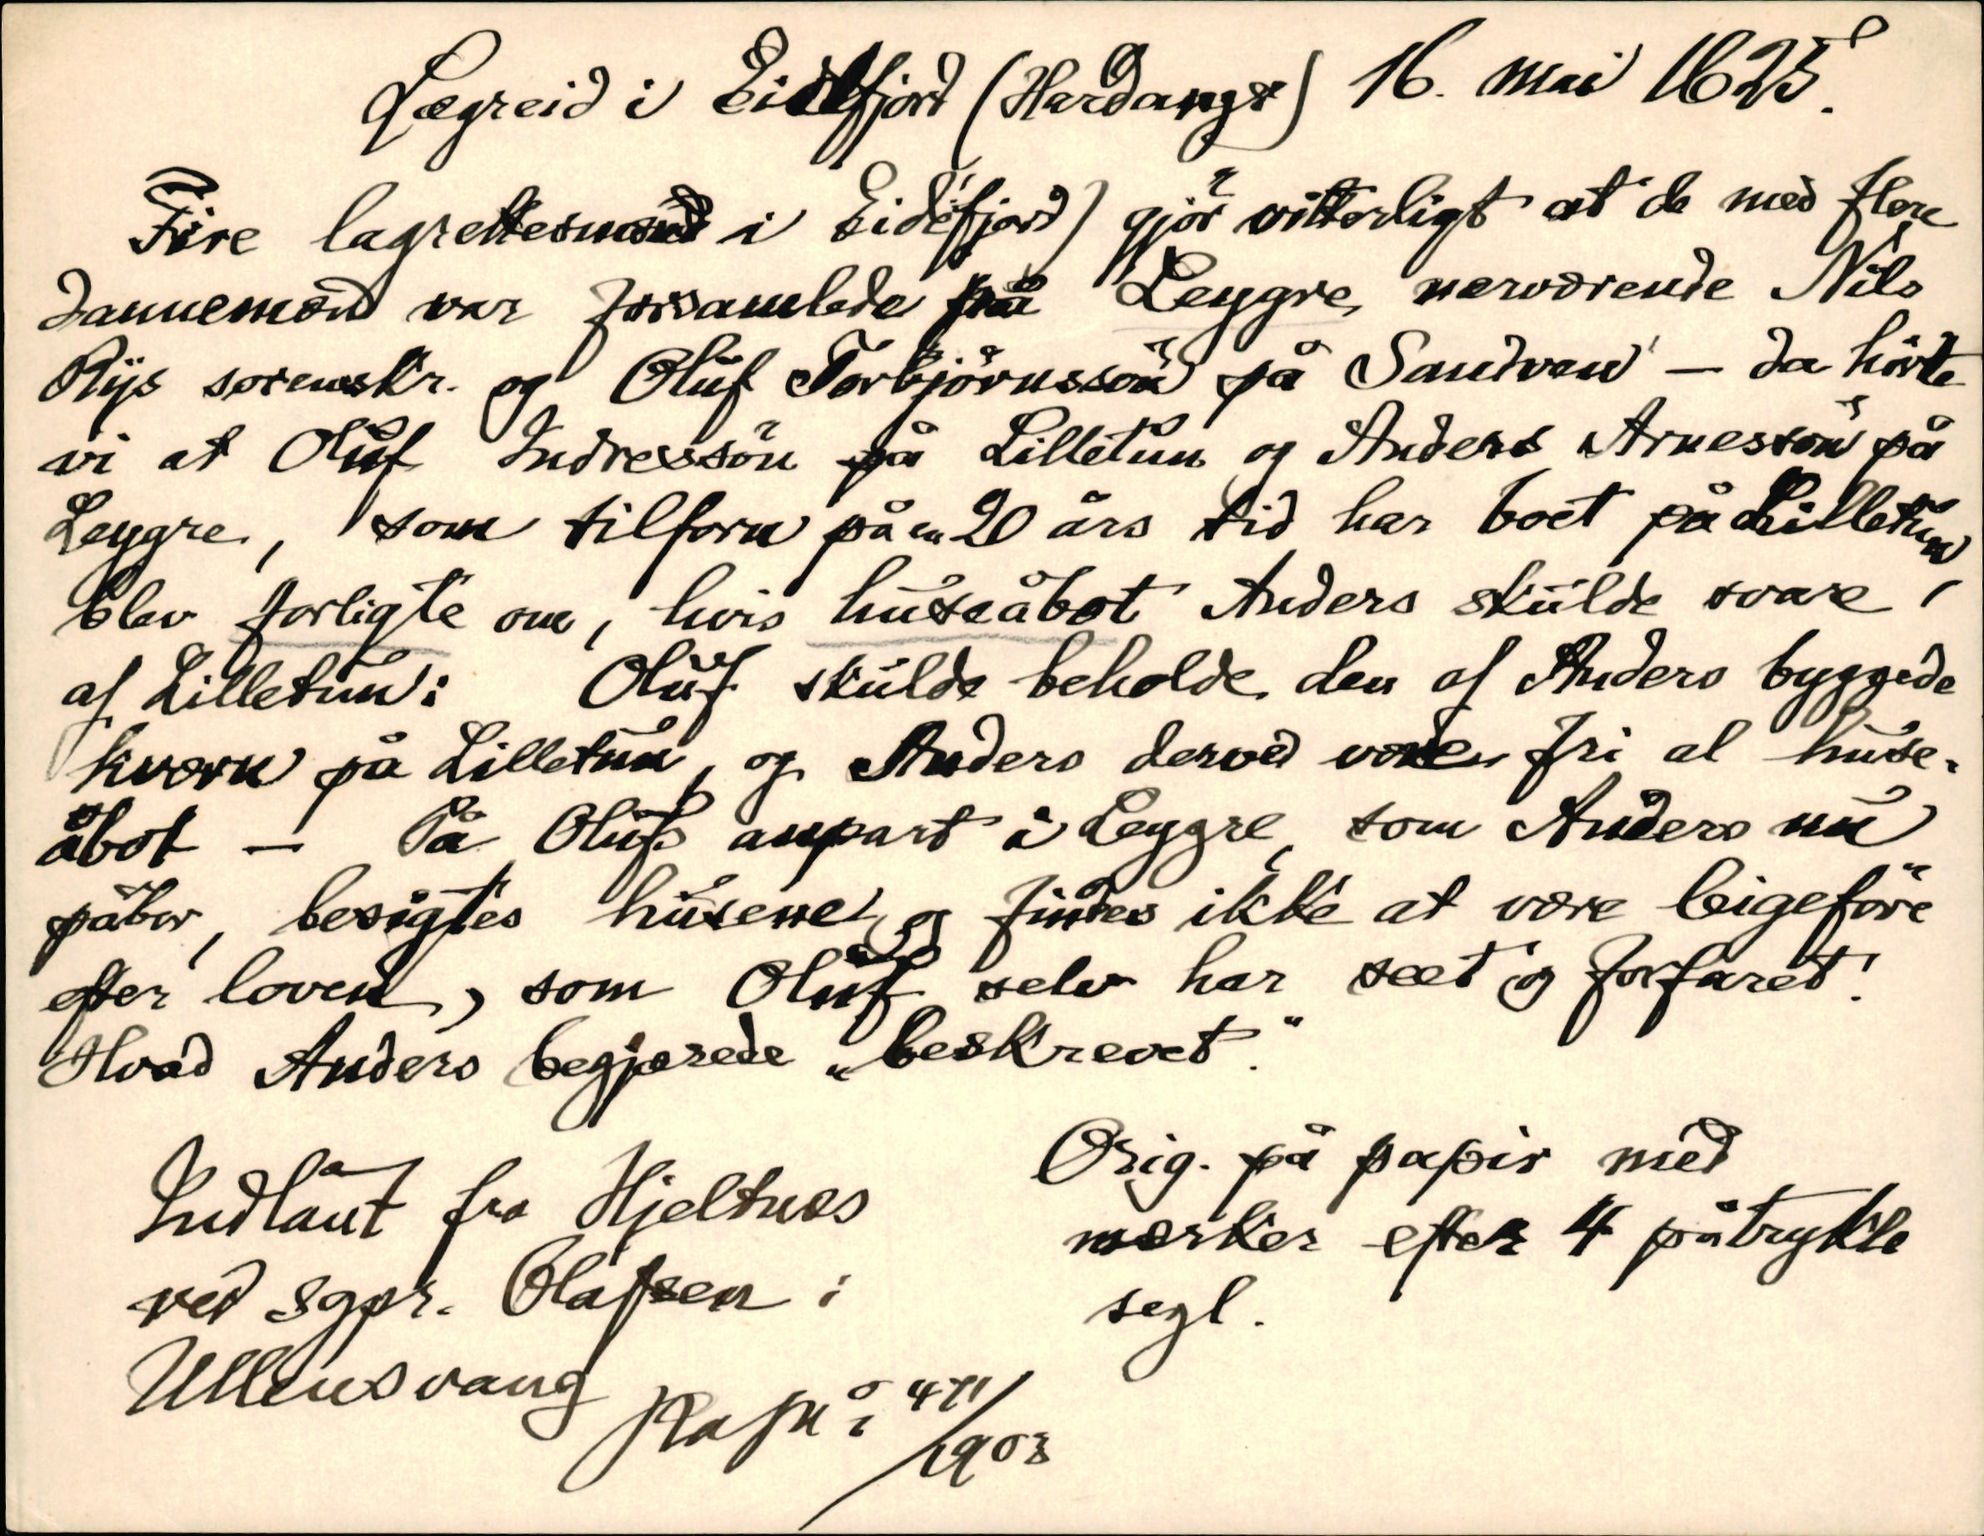 Lægreid i Eidfjord (Hardanger) 16. mai 1625.
Fire lagrettesmænd i Eidefjord) gjør vitterligt at de med flere
dannemænd var forsamlede på Leygre, nerværende Nils
Rÿs sorenskr. og Oluf Torbjørnssøn på Sandven – da hørte
vi at Oluf Indressøn på Lilletun og Anders Arnessøn på
Leygre, som tilforn på en 20 års tid har boet på Lilletun,
blev forligte om, hvis huseåbot Anders skulde svare
af Lilletun: Oluf skulde beholde den af Anders byggede
kværn på Lilletun, og Anders derved være fri al huse-
åbot – På Olufs anpart i Leygre, som Anders nu
påbor, besigtes husene og findes ikke at være leigeføre
efter loven, som Oluf selv har seet og forfaret!
Hvad Anders begjærede „beskrevet."
Indlånt fra Hjeltnes
ved sgpr. Olafsen i
Ullensvang
Orig. på papir med
mærker efter 4 påtrykte
segl.
471/1903